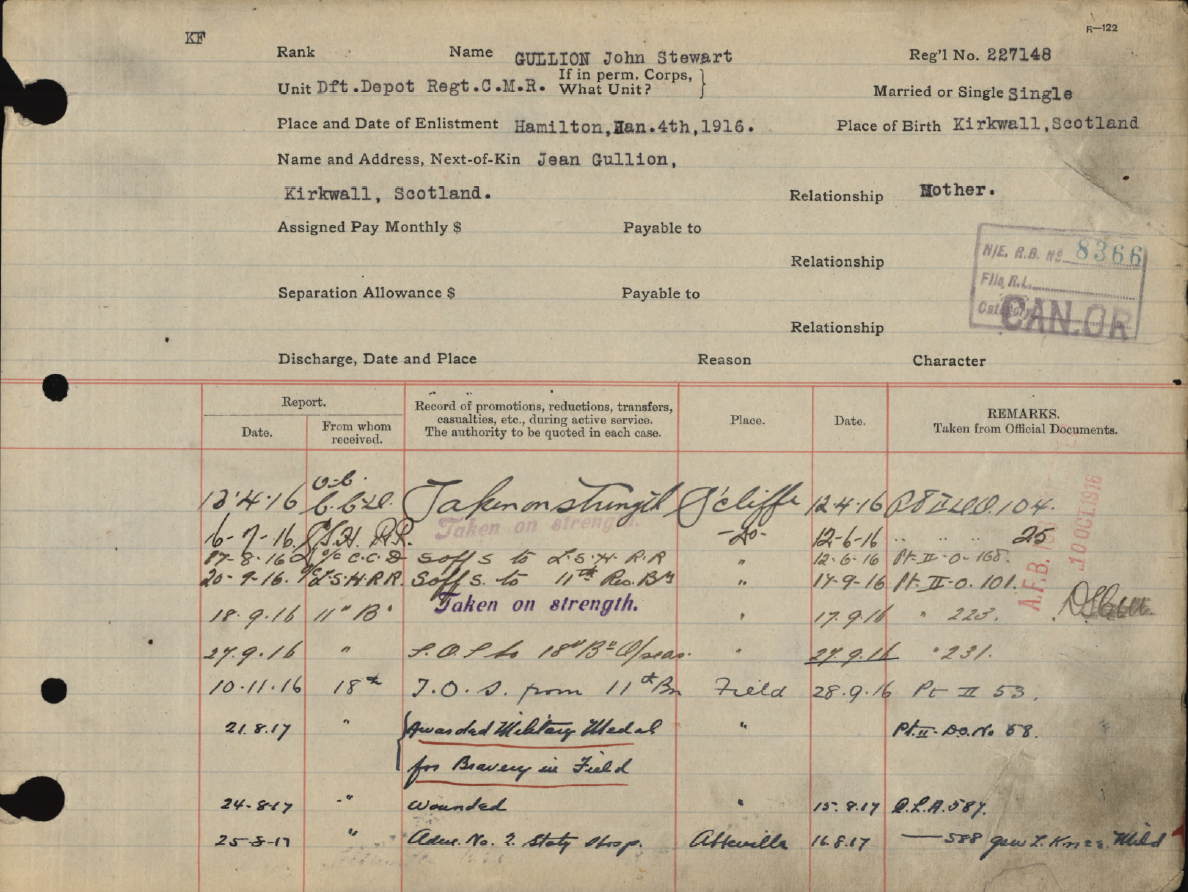 KF
R—122
Rank Name GULLION John Stewart Reg'l No. 227148
Unit Dft.Depot Regt.C.M.R. If in perm. Corps, What Unit? } Married or Single Single
Place and Date of Enlistment Hamilton, Jan.4th,1916. Place of Birth Kirkwall,Scotland
Name and Address, Next-of-Kin Jean Gullion,
Kirkwall, Scotland. Relationship Mother.
Assigned Pay Monthly $ Payable to
Relationship
N/E. R.B. No 8366
File R.L.
Category CAN.OR
Separation Allowance $ Payable to
Relationship
Discharge, Date and Place Reason Character
Report.
Date.
From whom received.
Record of promotions, reductions, transfers, casualties, etc., during active service. The authority to be quoted in each case.
Place.
Date.
REMARKS. Taken from Official Documents.
12.4.16 Taken on strength S'cliffe 12.4.16 104.
Taken on strength.
16-7-16 L.S.H. R.R. -do- 12-6-16 " " " 25
17-8-16 o/c C.C.D S off S to L.S.H R.R " 12-6-16 Pt. II-O-168.
20-9-16. o/c L.S.H.R.R. S off S. to 11th Res. Bn " 17-9-16 Pt. II-O. 101.
A.F.B. 10 OCT. 1916
18.9.16 11" B" Taken on strength. " 17.9.16 " 223.
27.9.16 " S.O.S to 18th Bn O/seas. " 27.9.16 " 231.
10.11.16 18th T.O.S. from 11th Bn Field 28.9.16 Pt II 53.
21.8.17 " Awarded Military Medal " Pt. II. D.O. No 58.
for Bravery in Field
24-8-17 " Wounded " 15.8.17 C.L.A.587.
25-8-17 " Adm. No. 2. Staty Hosp. Abbeville 16.8.17 — 588 gsw L. Knee. Mild